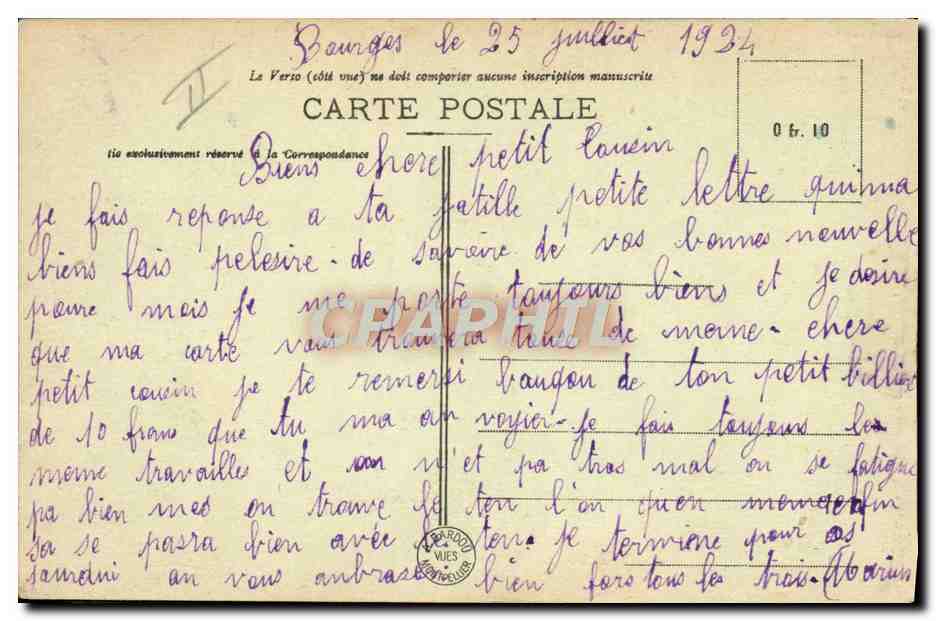 Bourges le 25 juilliet 1924
II
Le Verso (côté vue) ne doit comporter aucune inscription manuscrite
CARTE POSTALE
0 fr. 10
tie exclusivement réservé à la Correspondance
Biens chere petit Cousin
je fais reponse a ta jatille petite lettre qui ma
biens fais pelesire - de savoire de vos bonnes nouvelle
poure mois je me porte toujours biens et je desire
que ma carte vous trouvera tous de meme - chere
petit cousin je te remersi baugou de ton petit billier
de 10 frans que tu ma an voyier - je fais toujours les
meme travailles et on n'et pa tres mal on se fatigue
pa bien mes on trouve le ten l'on quen meme enfin
sa se pasra bien avée le ten. je termine pour os
jourdui an vous anbrase bien fors tous les trois - Marius
CPAPHIL
BARDOU
VUES
MONTPELLIER